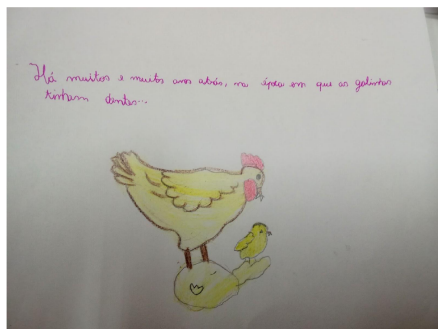 Há muitos e muitos anos atrás, na época em que as galinhas
tinham dentes...